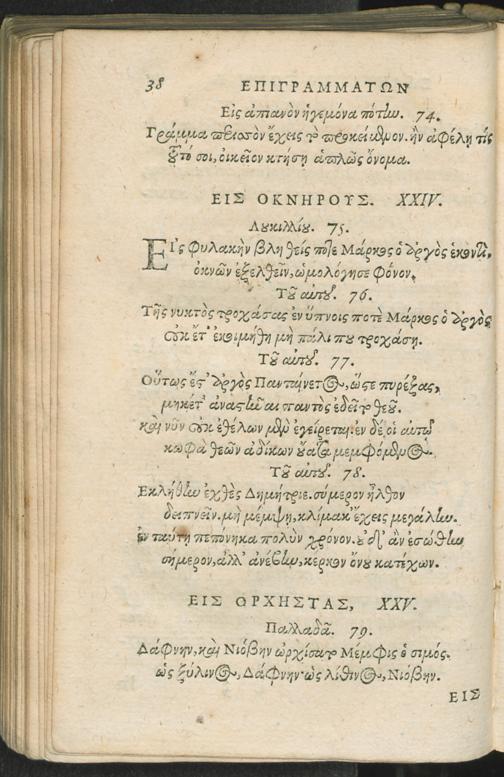 38 ΕΠΙΓΡΑΜΜΑΤΩΝ
Εἰς ἀπιανὸν ἡγεμόνα πότλω. 74.
Γράμμα περισσὸν ἔχεις τὸ προκείμϑμον. ἢν ἀφέλῃ τίς
τοῦτό σοι, οἰκεῖον κτήσῃ ἁπλῶς ὄνομα.
ΕΙΣ ΟΚΝΗΡΟΥΣ. XXIV.
Λουκιλλίου. 75.
ΕΙ᾿ς Φυλακὴν βληθείς ποτε Μάρκος ὁ ἀργὸς ἑκοντὶ,
ὀκνῶν ἐξελθεῖν, ὡμολόγησε Φόνον.
Τοῦ αὐτοῦ. 76.
Τῆς νυκτὸς τροχάσας ἐν ὕπνοις ποτὲ Μάρκος ὁ ἀργὸς,
οὐκ ἔτ' ἐκοιμήθη μὴ πάλι που τροχάσῃ.
Τοῦ αὐτοῦ. 77.
Οὕτως ἔστ' ἀργὸς Πανταίνετος, ὥστε πυρέξας,
μηκέτ' ἀναστῆναι παντὸς ἐδεῖτο θεοῦ.
καὶ νῦν οὐκ ἐθέλων μὲν ἐγείρεται· ἐν δέ οἱ αὐτῷ
κωφὰ θεῶν ἀδίκων οὔατα μεμφόμενος.
Τοῦ αὐτοῦ. 78.
Εκλήθην ἐχθὲς Δημήτριε. σύμερον ἦλθον
δειπνεῖν. μὴ μέμψῃ, κλίμακ' ἔχεις μεγάλην.
ἐν ταύτῃ πεπόνηκα πολὺν χρόνον. οὐδ' ἂν ἐσώθην
σήμερον, ἀλλ' ἀνέβην, κέρκον ὄνου κατέχων.
ΕΙΣ ΟΡΧΗΣΤΑΣ, XXV.
Παλλαδᾶ. 79.
Δάφνην, καὶ Νιόβην ὠρχίσατο Μέμφις ὁ σιμός.
ὡς ξύλινος, Δάφνην· ὡς λίθινος, Νιόβην.
ΕΙΣ